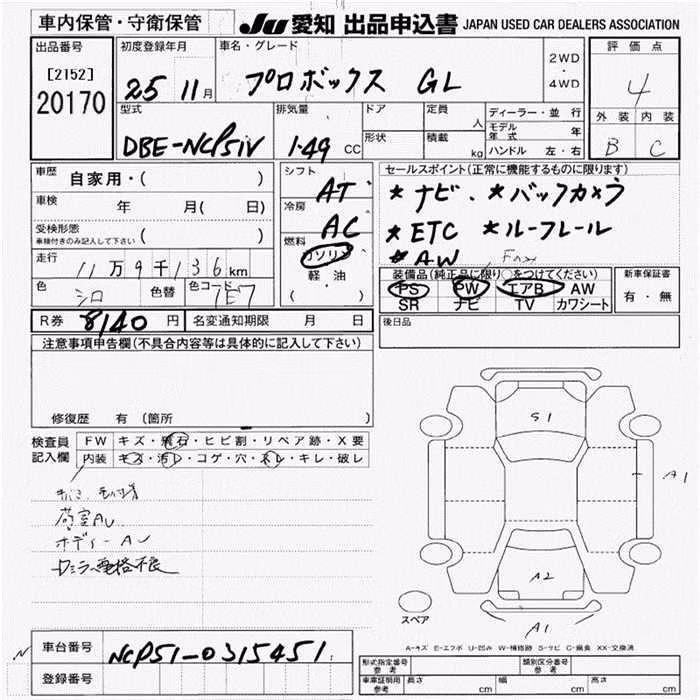 車内保管・守衛保管
JU 愛知 出品申込書 JAPAN USED CAR DEALERS ASSOCIATION
出品番号
[2152]
20170
初度登録年月
25 11月
車名・グレード
プロボックス GL
2WD
・
4WD
評価点
4
外装 内装
B C
型式
DBE-NCP51V
排気量
1.49 CC
ドア
形状
定員 人
積載 kg
ディーラー・並行
モデル年式 年
ハンドル 左・右
車歴 自家用・( )
車検 年 月( 日)
受検形態
車検付きのみ記入して下さい ( )
走行 11万9千136km
色 シロ 色替 色コード 1E7
シフト AT
冷房 AC
燃料 ガソリン
軽油
( )
セールスポイント(正常に機能するものに限ります)
* ナビ . * バックカメラ
* ETC * ルーフレール
* AW
装備品(純正品に限り○をつけてください)
PS PW エアB AW
SR ナビ TV カワシート
新車保証書
有・無
R券 8140 円 名変通知期限 月 日
後日品
注意事項申告欄(不具合内容等は具体的に記入して下さい)
修復歴 有(箇所
検査員記入欄
FW キズ・飛石・ヒビ割・リペア跡・X要
内装 キズ・汚レ・コゲ・穴・スレ・キレ・破レ
荷室AU
ボディーAU
S1
A1
A2
A1
スペア
A-キズ E-エクボ U-凹み W-補修跡 S-サビ C-腐食 XX-交換済
N
車台番号 NCP51-0315451
登録番号
形式指定番号 参考
類別区分番号 参考
車庫証明用 参考 長さ cm 幅 cm 高さ cm